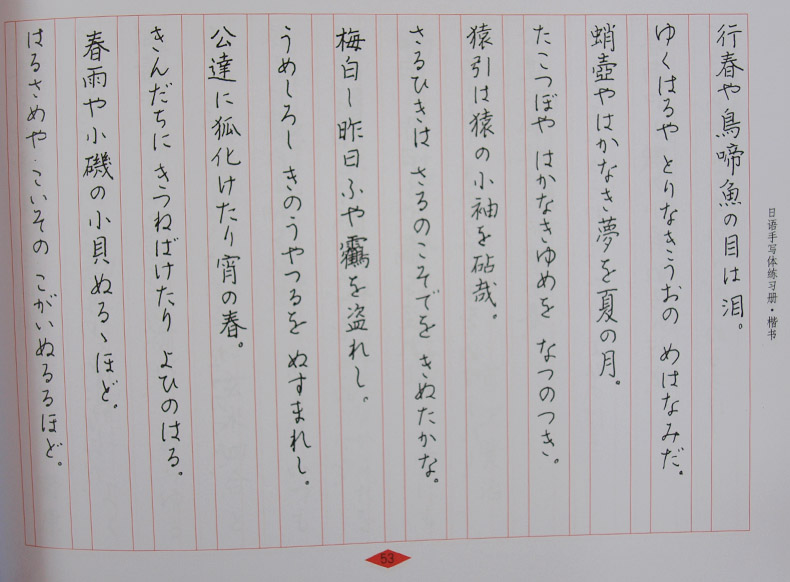 日语手写体练习册·楷书
行春や鳥啼魚の目は泪。
ゆくはるや とりなきうおの めはなみだ。
蛸壺やはかなき夢を夏の月。
たこつぼや はかなきゆめを なつのつき。
猿引は猿の小袖を砧哉。
さるひきは さるのこそでを きぬたかな。
梅白し昨日ふや靏を盗れし。
うめしろし きのうやつるを ぬすまれし。
公達に狐化けたり宵の春。
きんだちに きつねばけたり よひのはる。
春雨や小磯の小貝ぬるゝほど。
はるさめや こいその こがいぬるるほど。
53